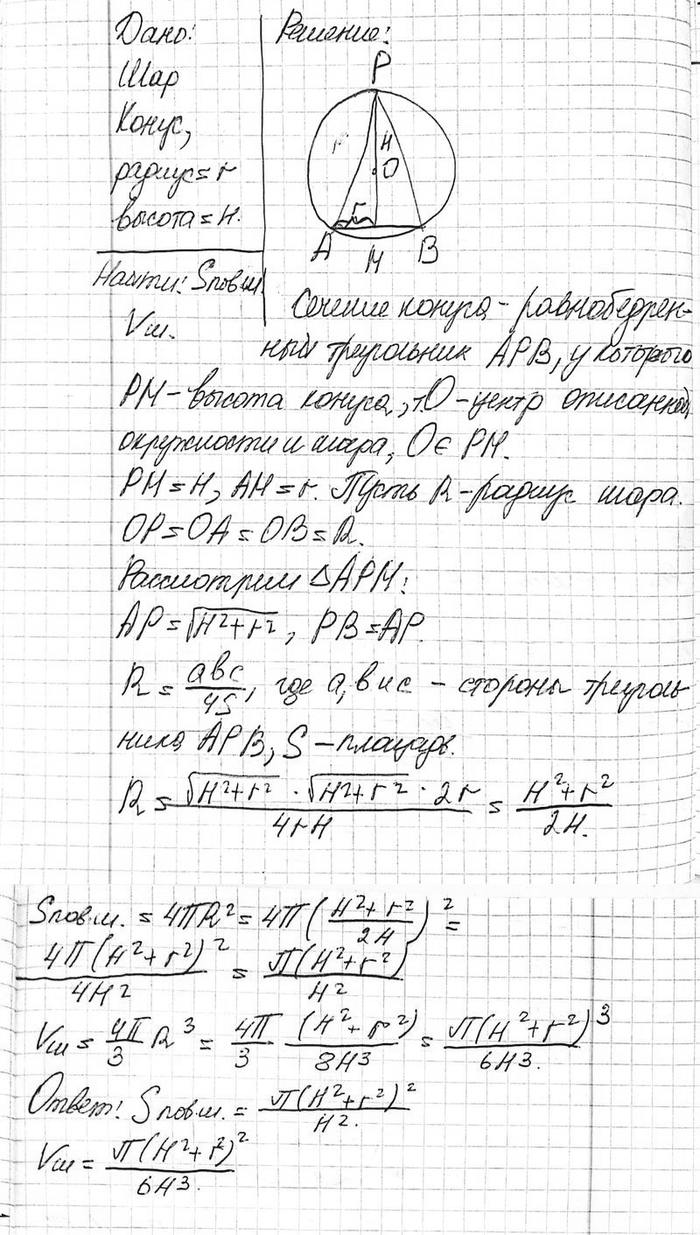 Дано:
Шар
Конус,
радиус = r
высота = H.
Найти: Sпов.ш.
Vш.
Решение:
P
H
O
r
A
M
B
Сечение конуса - равнобедрен-
ный треугольник APB, у которого
PM - высота конуса, т.O - центр описанной
окружности и шара, O ∈ PM.
PM = H, AM = r. Пусть R - радиус шара.
OP = OA = OB = R.
Рассмотрим △APM:
AP = √(H²+r²), PB = AP.
R = abc/4S, где a, b и c - стороны треуголь-
ника APB, S - площадь.
R = (√(H²+r²) · √(H²+r²) · 2r)/(4rH) = (H²+r²)/(2H).
Sпов.ш. = 4πR² = 4π((H²+r²)/(2H))² =
(4π(H²+r²)²)/(4H²) = (π(H²+r²))/(H²)
Vш = 4π/3 R³ = 4π/3 · (H²+r²)/(8H³) = (π(H²+r²)³)/(6H³).
Ответ: Sпов.ш. = (π(H²+r²)²)/(H²).
Vш = (π(H²+r²)²)/(6H³).